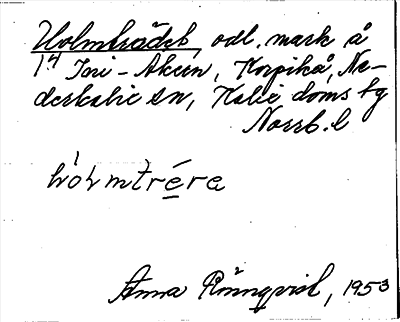 Holmträdet, odl. mark å
1⁴ Jori-Akeen, Korpikå, Ne-
derkalix sn, Kalix doms tg
Norrb. l
hólmtrére
Anna Rönnqvist, 1953